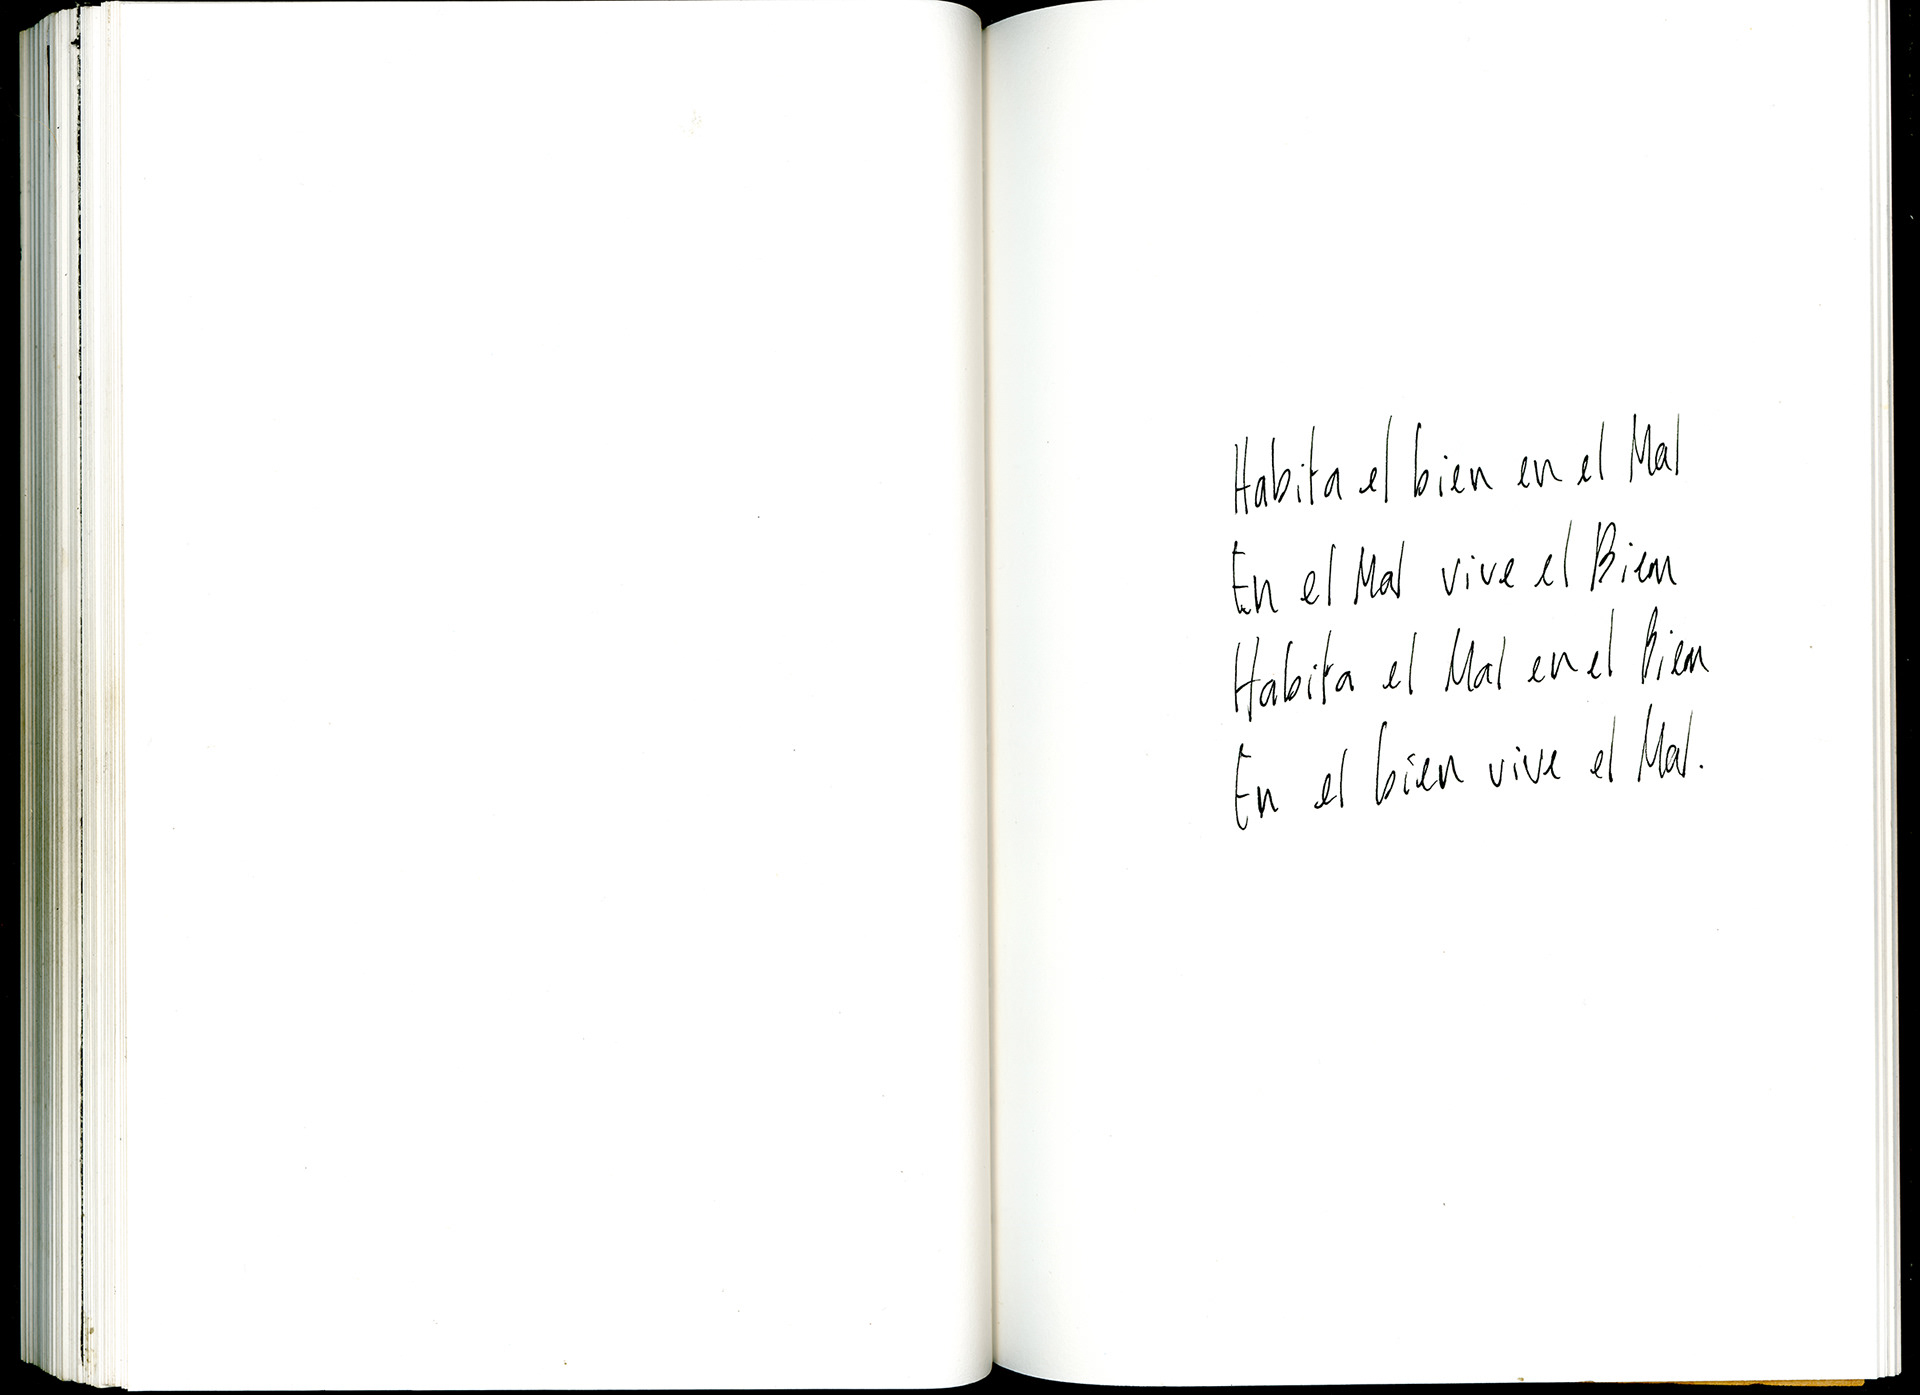 Habita el bien en el Mal
En el Mal vive el Bien
Habita el Mal en el Bien
En el bien vive el Mal.